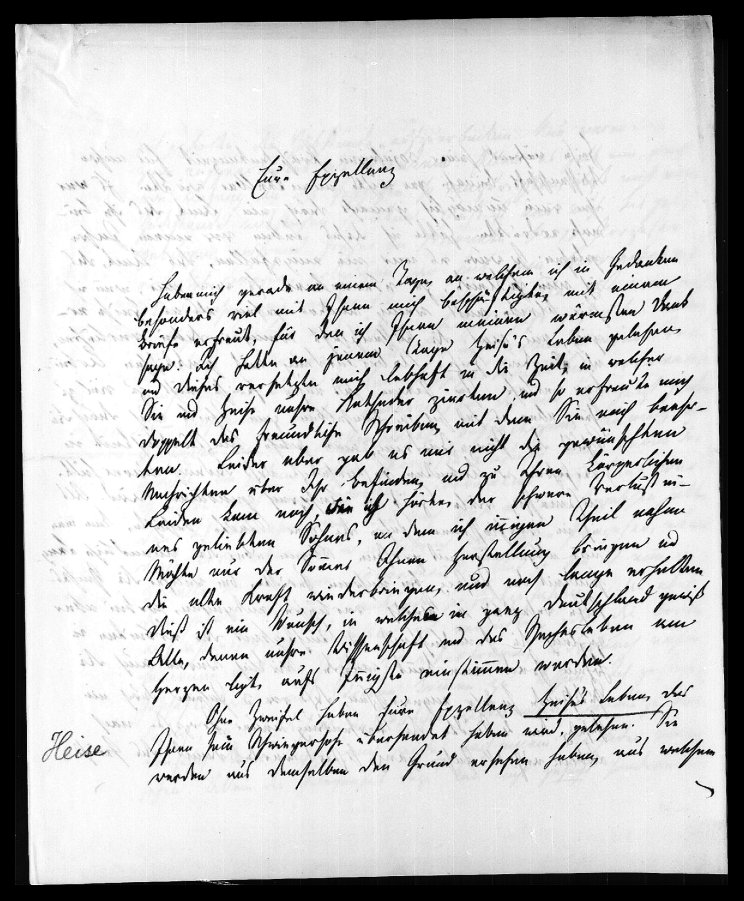 Eure Exzellenz
haben mich gerade an einem Tage, an welchem ich in Gedanken
besonders viel mit Ihnen mich beschäftigte, mit einem
Briefe erfreut, für den ich Ihnen meinen wärmsten Dank
sage. Ich hatte an jenem Tage Heise's Leben gelesen,
und dieses versetzte mich lebhaft in die Zeit, in welcher
Sie und Heise unsre Katheder zierten, und so erfreute mich
doppelt das freundliche Schreiben, mit dem Sie mich beehr-
ten. Leider aber gab es mir nicht die gewünschten
Nachrichten über Ihr Befinden, und zu Ihren körperlichen
Leiden kam noch, wie ich hörte, der schwere Verlust ei-
nes geliebten Sohnes, an dem ich innigen Theil nahm.
Möchte nur der Sommer Ihnen Herstellung bringen und
die alte Kraft wiederbringen, und noch lange erhalten.
Dieß ist ein Wunsch, in welchen in ganz Deutschland gewiß
Alle, denen unsre Wissenschaft und das Rechtsleben am
Herzen ligt, aufs Innigste einstimmen werden.
Ohne Zweifel haben Eure Exzellenz Heise's Leben, das
Ihnen sein Schwiegersohn übersendet haben wird, gelesen. Sie
Heise
werden aus demselben den Grund ersehen haben, aus welchem